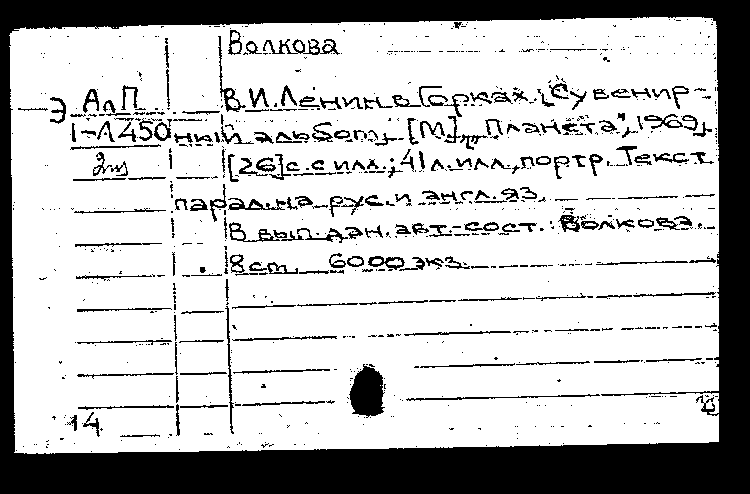 Волкова
Э АлП В.И.Ленин в Горках. [Сувенир-
1-Л450 ный альбом. [М.], „Планета", 1969.
2ш [26]с.с илл.; 41 л.илл.,портр. Текст
парал.на рус.и англ.яз.
В вып.дан.авт.-сост.: Волкова.
8см. 6000 экз.
14